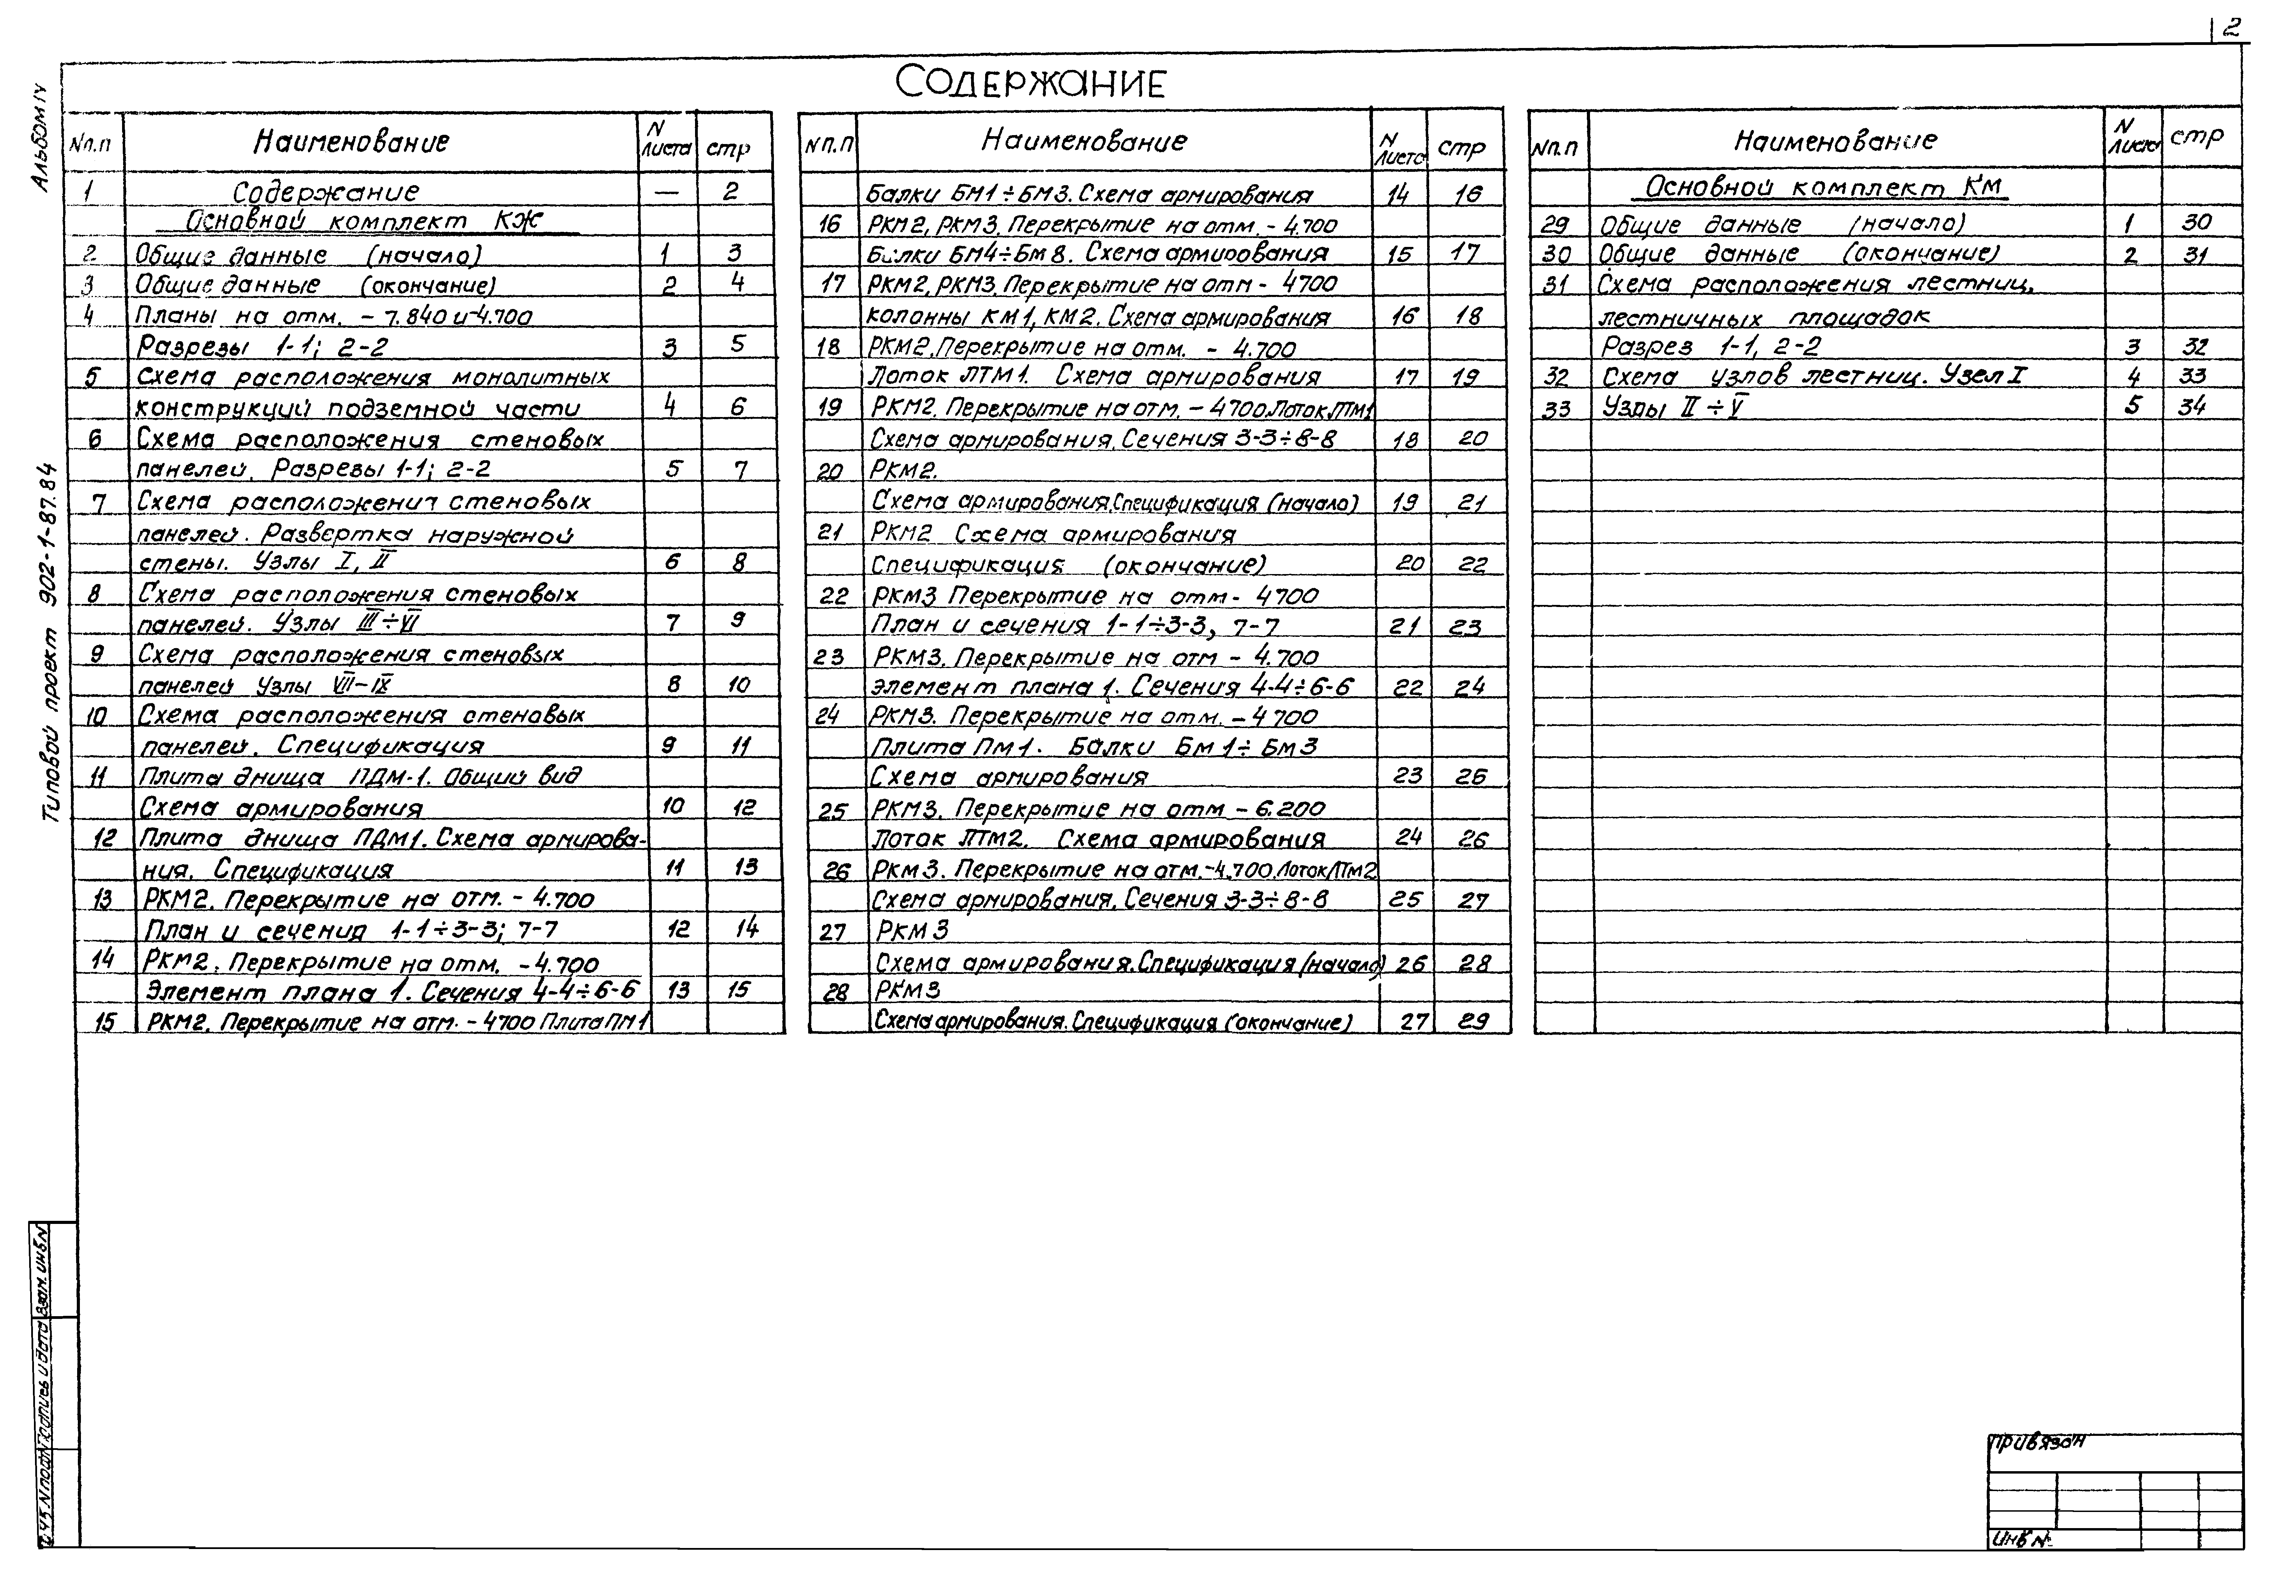 2
Альбом IV
Типовой проект 902-1-87.84
СОДЕРЖАНИЕ
Nп.п Наименование N листа стр
1 Содержание — 2
Основной комплект КЖ
2 Общие данные (начало) 1 3
3 Общие данные (окончание) 2 4
4 Планы на отм. -7.840 и -4.700
Разрезы 1-1; 2-2 3 5
5 Схема расположения монолитных
конструкций подземной части 4 6
6 Схема расположения стеновых
панелей. Разрезы 1-1; 2-2 5 7
7 Схема расположения стеновых
панелей. Развертка наружной
стены. Узлы I, II 6 8
8 Схема расположения стеновых
панелей. Узлы III÷VI 7 9
9 Схема расположения стеновых
панелей Узлы VII-IX 8 10
10 Схема расположения стеновых
панелей. Спецификация 9 11
11 Плита днища ПДМ-1. Общий вид
Схема армирования 10 12
12 Плита днища ПДМ1. Схема армирова-
ния. Спецификация 11 13
13 РКМ2. Перекрытие на отм. -4.700
План и сечения 1-1÷3-3; 7-7 12 14
14 РКМ2. Перекрытие на отм. -4.700
Элемент плана 1. Сечения 4-4÷6-6 13 15
15 РКМ2. Перекрытие на отм. -4700 Плита ПМ1
Nп.п Наименование N листа стр
Балки БМ1÷БМ3. Схема армирования 14 16
16 РКМ2, РКМ3. Перекрытие на отм. -4.700
Балки БМ4÷БМ8. Схема армирования 15 17
17 РКМ2, РКМ3. Перекрытие на отм - 4700
колонны КМ1, КМ2. Схема армирования 16 18
18 РКМ2. Перекрытие на отм. - 4.700
Лоток ЛТМ1. Схема армирования 17 19
19 РКМ2. Перекрытие на отм. -4700. Лоток ЛТМ1
Схема армирования. Сечения 3-3÷8-8 18 20
20 РКМ2.
Схема армирования. Спецификация (начало) 19 21
21 РКМ2 Схема армирования
Спецификация (окончание) 20 22
22 РКМ3 Перекрытие на отм- 4700
План и сечения 1-1÷3-3, 7-7 21 23
23 РКМ3. Перекрытие на отм - 4.700
элемент плана 1. Сечения 4-4÷6-6 22 24
24 РКМ3. Перекрытие на отм. - 4700
Плита Пм1. Балки Бм1÷Бм3
Схема армирования 23 26
25 РКМ3. Перекрытие на отм - 6.200
Лоток ЛТМ2. Схема армирования 24 26
26 Ркм3. Перекрытие на отм. -4.700. Лоток ЛТм2
Схема армирования. Сечения 3-3÷8-8 25 27
27 РКМ3
Схема армирования. Спецификация (начало) 26 28
28 РКМ3
Схема армирования. Спецификация (окончание) 27 29
Nп.п Наименование N листа стр
Основной комплект КМ
29 Общие данные (начало) 1 30
30 Общие данные (окончание) 2 31
31 Схема расположения лестниц,
лестничных площадок
Разрез 1-1, 2-2 3 32
32 Схема узлов лестниц. Узел I 4 33
33 Узлы II ÷ V 5 34
Взам. инв N
Подпись и дата
N подл
Привязан
Инв №